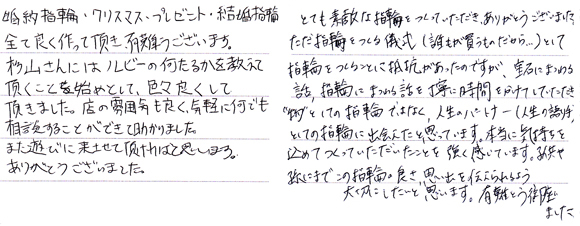 婚約指輪・クリスマス・プレゼント・結婚指輪
全て良く作って頂き有難うございます。
杉山さんにはルビーの何たるかを教えて
頂くことを始めとして、色々良くして
頂きました。店の雰囲気も良く、気軽に何でも
相談することができて助かりました。
また遊びに来させて頂ければと思います。
ありがとうございました。
とても素敵な指輪をつくっていただき、ありがとうございました。
ただ指輪をつくる儀式(誰もが買うものだから…)として
指輪をつくることに抵抗があったのですが、宝石にまつわる
話、指輪にまつわる話を丁寧に時間をかけてしていただき
"物"としての指輪ではなく、人生のパートナー(人生の証)
としての指輪に出会えたと思っています。本当に気持ちを
込めてつくっていただいたことを強く感じています。子供や
孫にまでこの指輪の良さ、思い出を伝えられるよう
大切にしたいと思います。有難う御座い
ました